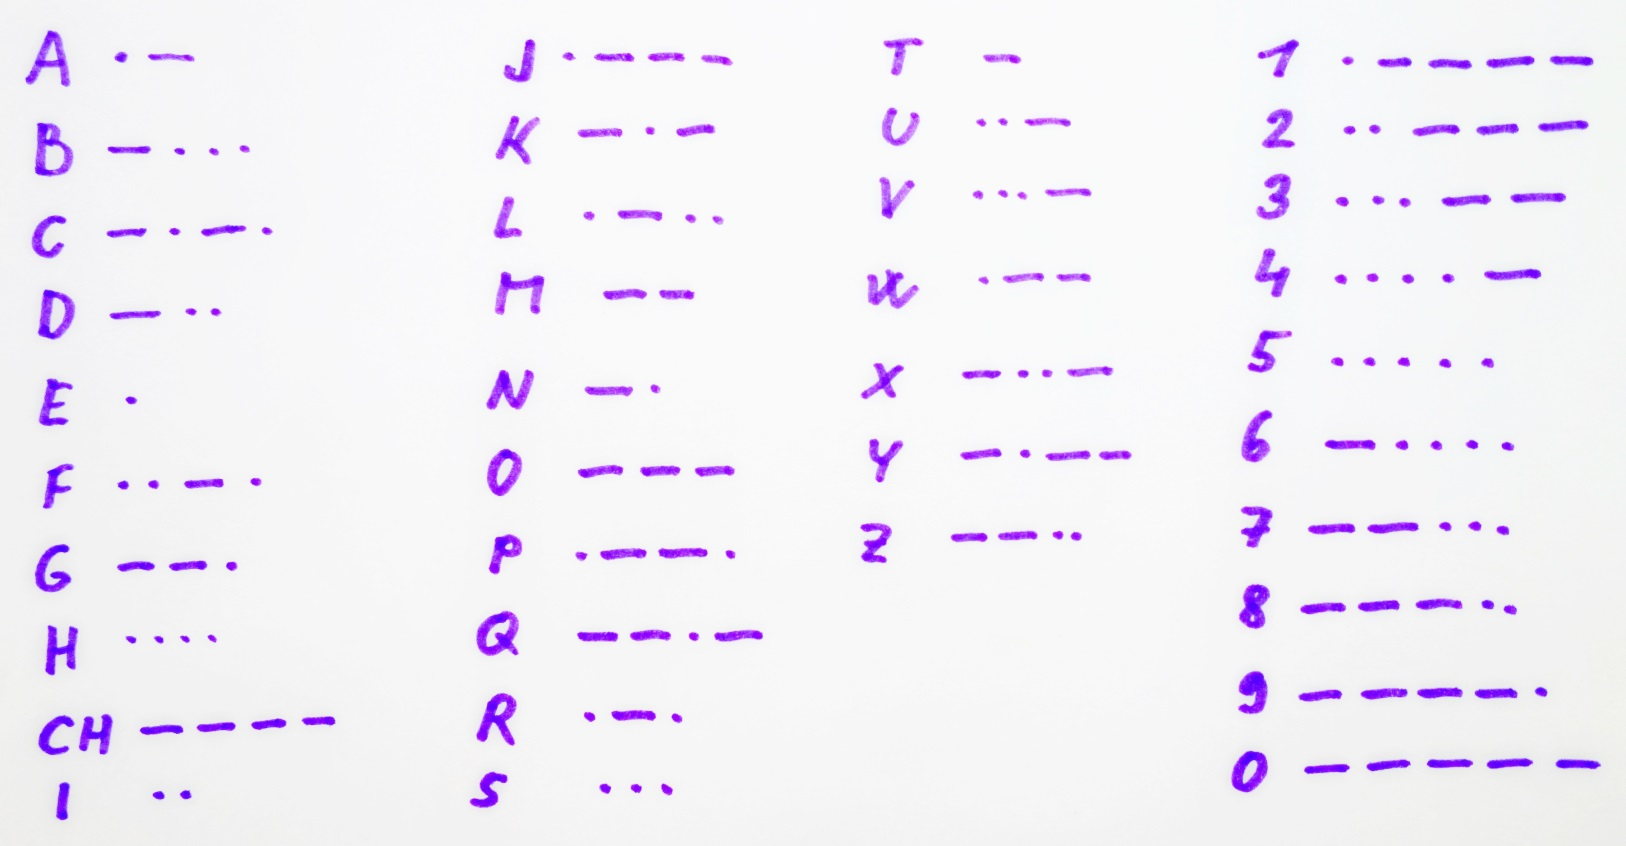 A · —
B — · · ·
C — · — ·
D — · ·
E ·
F · · — ·
G — — ·
H · · · ·
CH — — — —
I · ·
J · — — —
K — · —
L · — · ·
M — —
N — ·
O — — —
P · — — ·
Q — — · —
R · — ·
S · · ·
T —
U · · —
V · · · —
W · — —
X — · · —
Y — · — —
Z — — · ·
1 · — — — —
2 · · — — —
3 · · · — —
4 · · · · —
5 · · · · ·
6 — · · · ·
7 — — · · ·
8 — — — · ·
9 — — — — ·
0 — — — — —